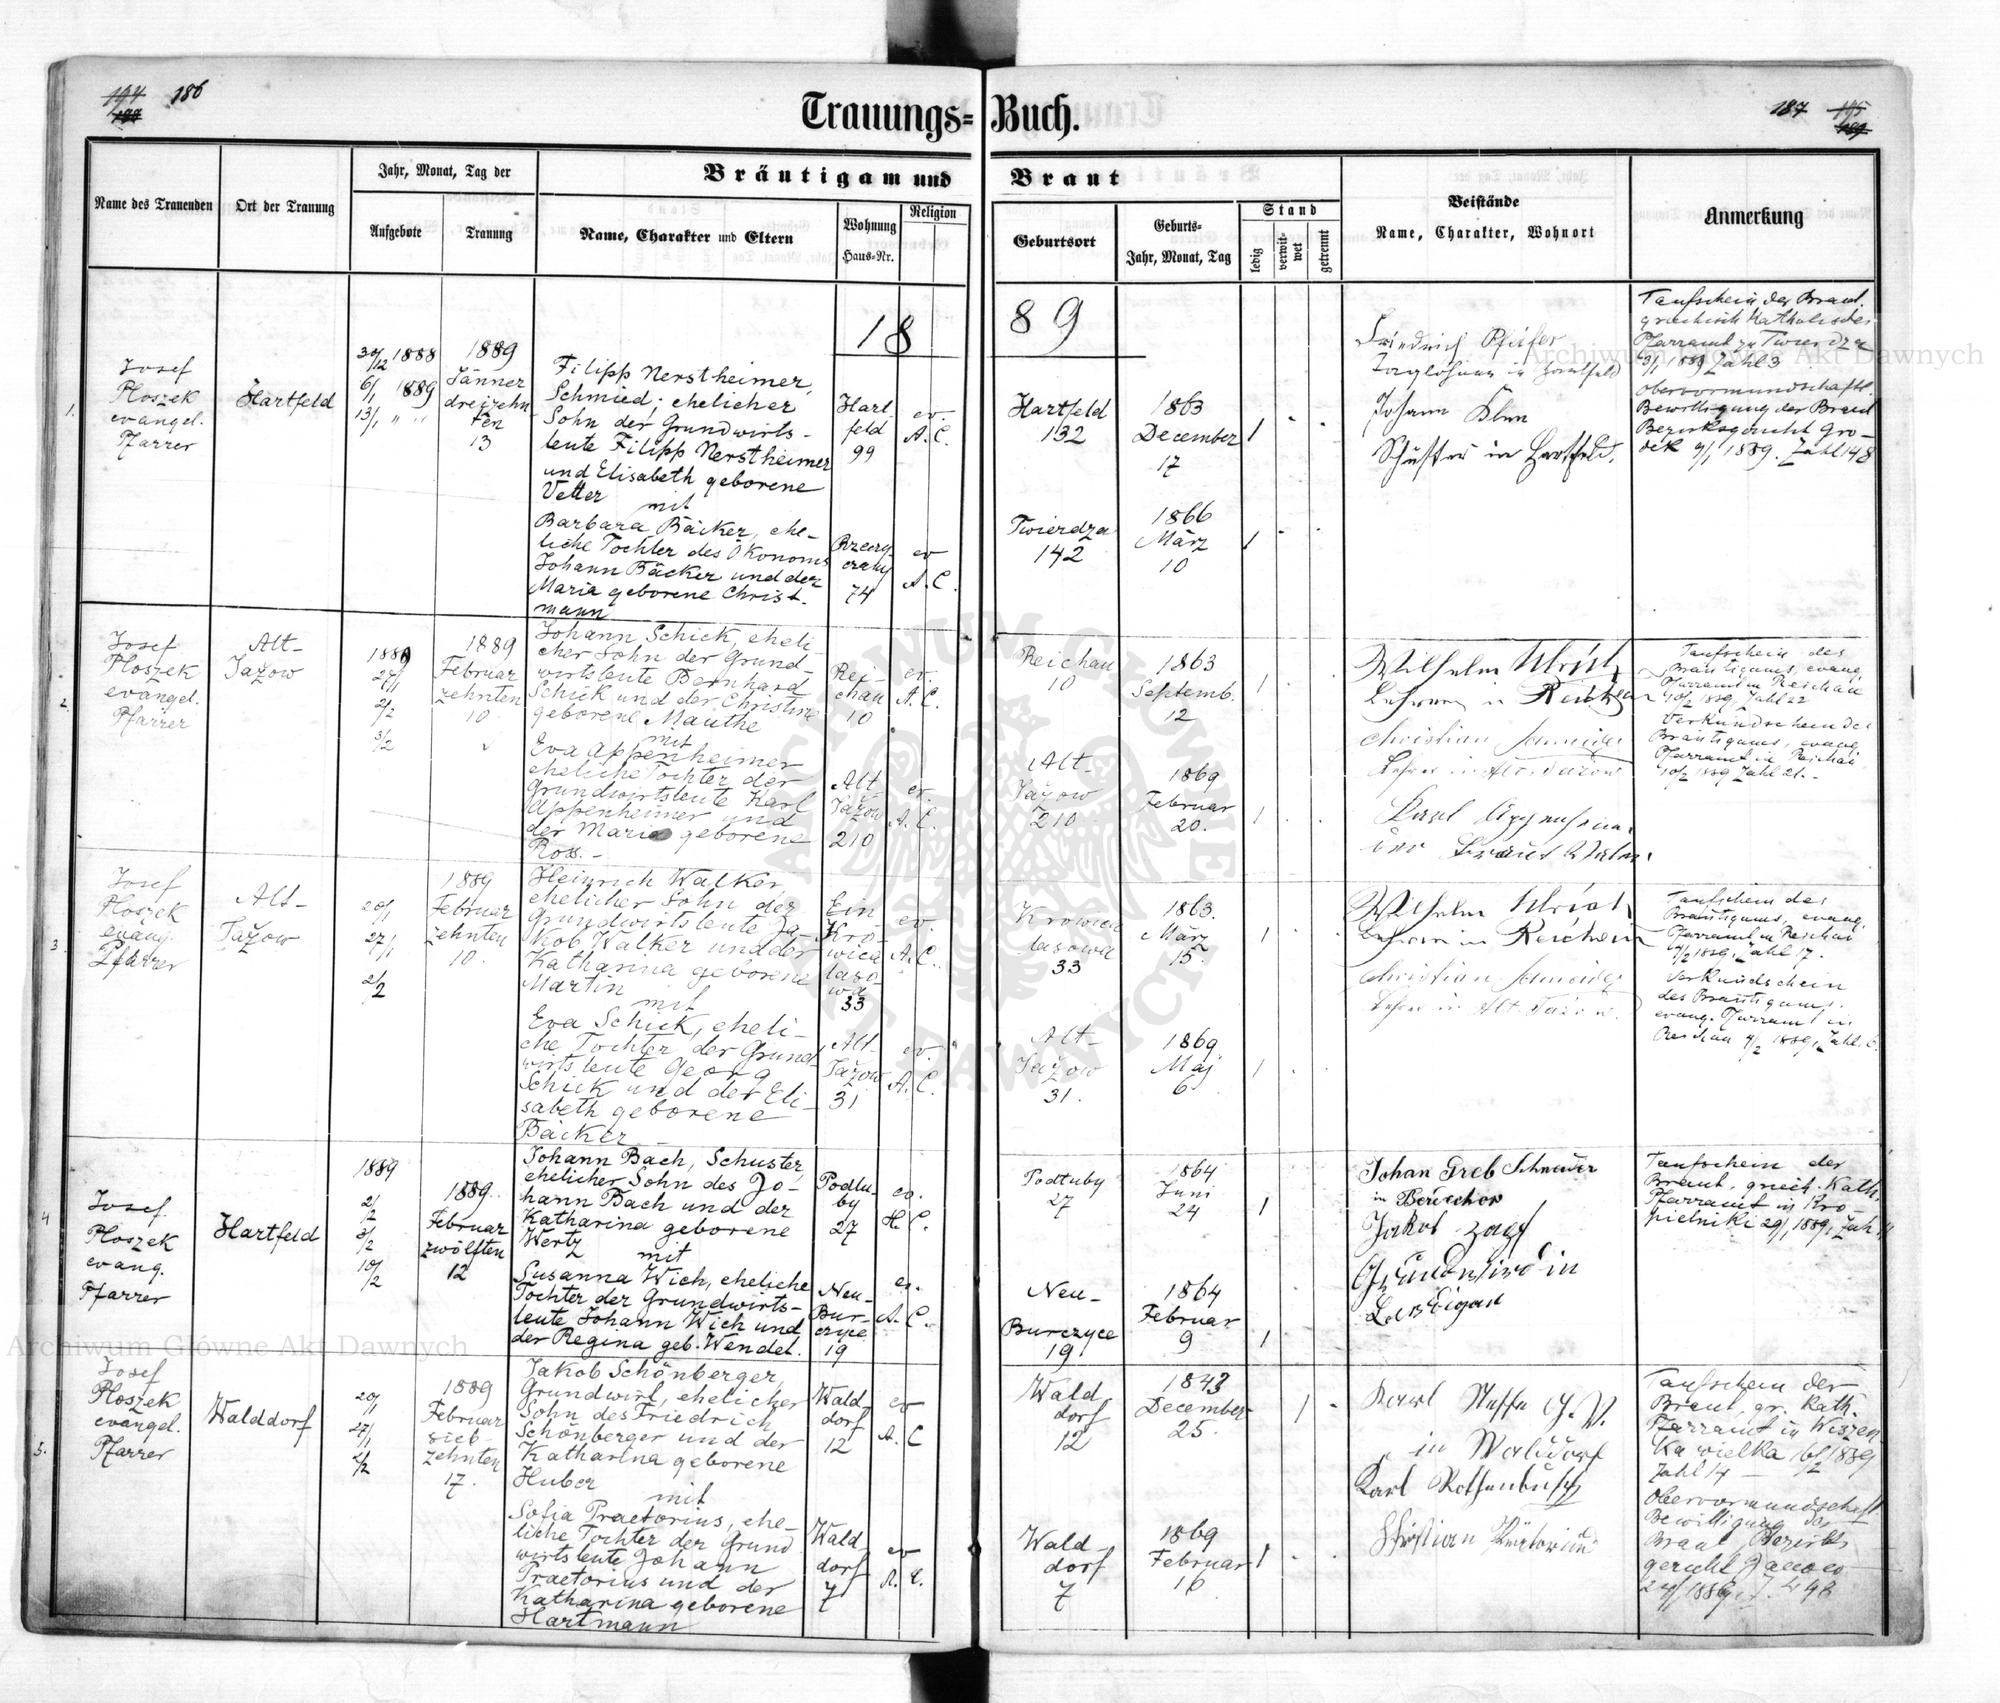 194 186
188
Trauungs-Buch.
187 195
189
Name des Trauenden
Ort der Trauung
Jahr, Monat, Tag der
Aufgebote
Trauung
Bräutigam und Braut
Name, Charakter und Eltern
Wohnung
Haus-Nr.
Religion
Geburtsort
Geburts-
Jahr, Monat, Tag
Stand
ledig
verwit-
wet
getrennt
Beistände
Name, Charakter, Wohnort
Anmerkung
1889
1.
Josef
Ploszek
evangel.
Pfarrer
Hartfeld
30/12 1888
6/1 1889
13/1 " "
1889
Jänner
dreizehn-
ten
13
Filipp Nerstheimer,
Schmied, ehelicher
Sohn der Grundwirts-
leute Filipp Nerstheimer
und Elisabeth geborene
Vetter
mit
Barbara Bäcker, ehe-
liche Tochter des Ökonoms
Johann Bäcker und der
Maria geborene Christ-
mann
Hart-
feld
99
ev.
A. C.
74
ev
A. C.
Hartfeld
132
1863
December
17
Twierdza
142
1866
März
10
Friedrich Pfeifer
Taglöhner in Hartfeld
Johann Klem
Schuster in Hartfeld.
Taufschein der Braut
griechisch Katholisches
Pfarramt zu Twierdza
3/1 1889 Zahl 3
obervormundschaftl.
Bewilligung der Braut
Bezirksgericht Gro-
dek 9/1 1889. Zahl 148
2.
Josef
Ploszek
evangel.
Pfarrer
Alt-
Jažow
1889
27/1
2/2
3/2
1889
Februar
zehnten
10
Johann Schick, eheli-
cher Sohn der Grund-
wirtsleute Bernhard
Schick und der Christine
geborene Mauthe
mit
Eva Appenheimer
eheliche Tochter der
Grundwirtsleute Karl
Appenheimer und
der Maria geborene
Ross.-
Rei-
chau
10
ev.
A. C.
Alt-
Jažow
210
ev.
A. C.
Reichau
10
1863
Septemb.
12
Alt-
Jažow
210
1869
Februar
20.
Wilhelm Ulrich
Lehrer in Reichau
Christian Schneider
Lehrer in Alt Jažow
Karl Appenheimer
der Braut Vater
Taufschein des
Bräutigams, evang.
Pfarramt in Reichau
10/2 1889, Zahl 22
Verkündschein des
Bräutigams, evang.
Pfarramt in Reichau
10/2 1889 Zahl 21.-
3
Josef
Ploszek
evang.
Pfarrer
Alt-
Jažow
20/1
27/1
2/2
1889
Februar
zehnten
10.
Heinrich Walker,
ehelicher Sohn der
Grundwirtsleute Ja-
kob Walker und der
Katharina geborene
Martin
mit
Eva Schick, eheli-
che Tochter der Grund-
wirtsleute Georg
Schick und der Eli-
sabeth geborene
Bäcker -
Ein
Kro-
wica
laso-
wa
33
ev.
A. C.
Alt-
Jažow
31
ev.
A. C.
Krowica
lasowa
33
1863.
März
15
Alt-
Jažow
31.
1869
Maj
6
Wilhelm Ulrich
Lehrer in Reichau
Christian Schneider
Lehrer in Alt Jažow.
Taufschein des
Bräutigams, evang.
Pfarramt in Reichau
1889, Zahl 17.
Verkündschein
des Bräutigams.
evang. Pfarramt in
Reichau 9/2 1889, Zahl 6.
4
Josef
Ploszek
evang.
Pfarrer
Hartfeld
1889
2/2
3/2
10/2
1889.
Februar
zwölften
12
Johann Bach, Schuster,
ehelicher Sohn des Jo-
hann Bach und der
Katharina geborene
Wertz
mit
Susanna Wich, eheliche
Tochter der Grundwirts-
leute Johann Wich und
der Regina geb. Wendel.
Podlu-
by
27
ev.
H. C.
Neu-
Bur-
czyce
19
ev.
A. C.
Podtuby
27
1864
Juni
24
Neu-
Burczyce
19
1864
Februar
9
Johan Greb Schneider
in Beruchow
Jakob
Grundwird in
Taufschein der
Braut, griech. Kath.
Pfarramt in Kro-
pielniki 29/1 1889, Zah
5.
Josef
Ploszek
evangel.
Pfarrer
Walddorf
20/1
27/1
2/2
1889
Februar
sieb-
zehnten
17.
Jakob Schönberger,
Grundwirt, ehelicher
Sohn des Friedrich
Schönberger und der
Katharina geborene
Huber
mit
Sofia Praetorius, ehe-
liche Tochter der Grund
wirtsleute Johann
Praetorius und der
Katharina geborene
Hartmann
Wald-
dorf
12
ev
A. C
Wald
dorf
7
ev
A. C.
Wald
dorf
12
1843
December
25.
Wald-
dorf
7
1869
Februar
16
Karl Steffe G. W.
in Walddorf
Karl Rothenbusch
Christian Prätorius
Taufschein der
Braut, gr. Kath.
Pfarramt in Wiszen-
ka wielka 16/2 1889
Zahl 14 -
Obervormundschaft.
Bewilligung der
Braut Bezirks
gericht Janow
Archiwum Główne Akt Dawnych
Archiwum Główne Akt Dawnych
ARCHIWUM GŁÓWNE AKT DAWNYCH